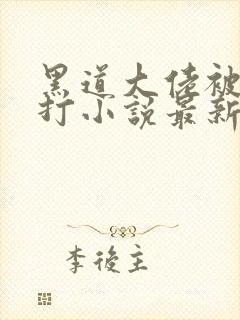 黑道大佬被
打小說最新
李後主